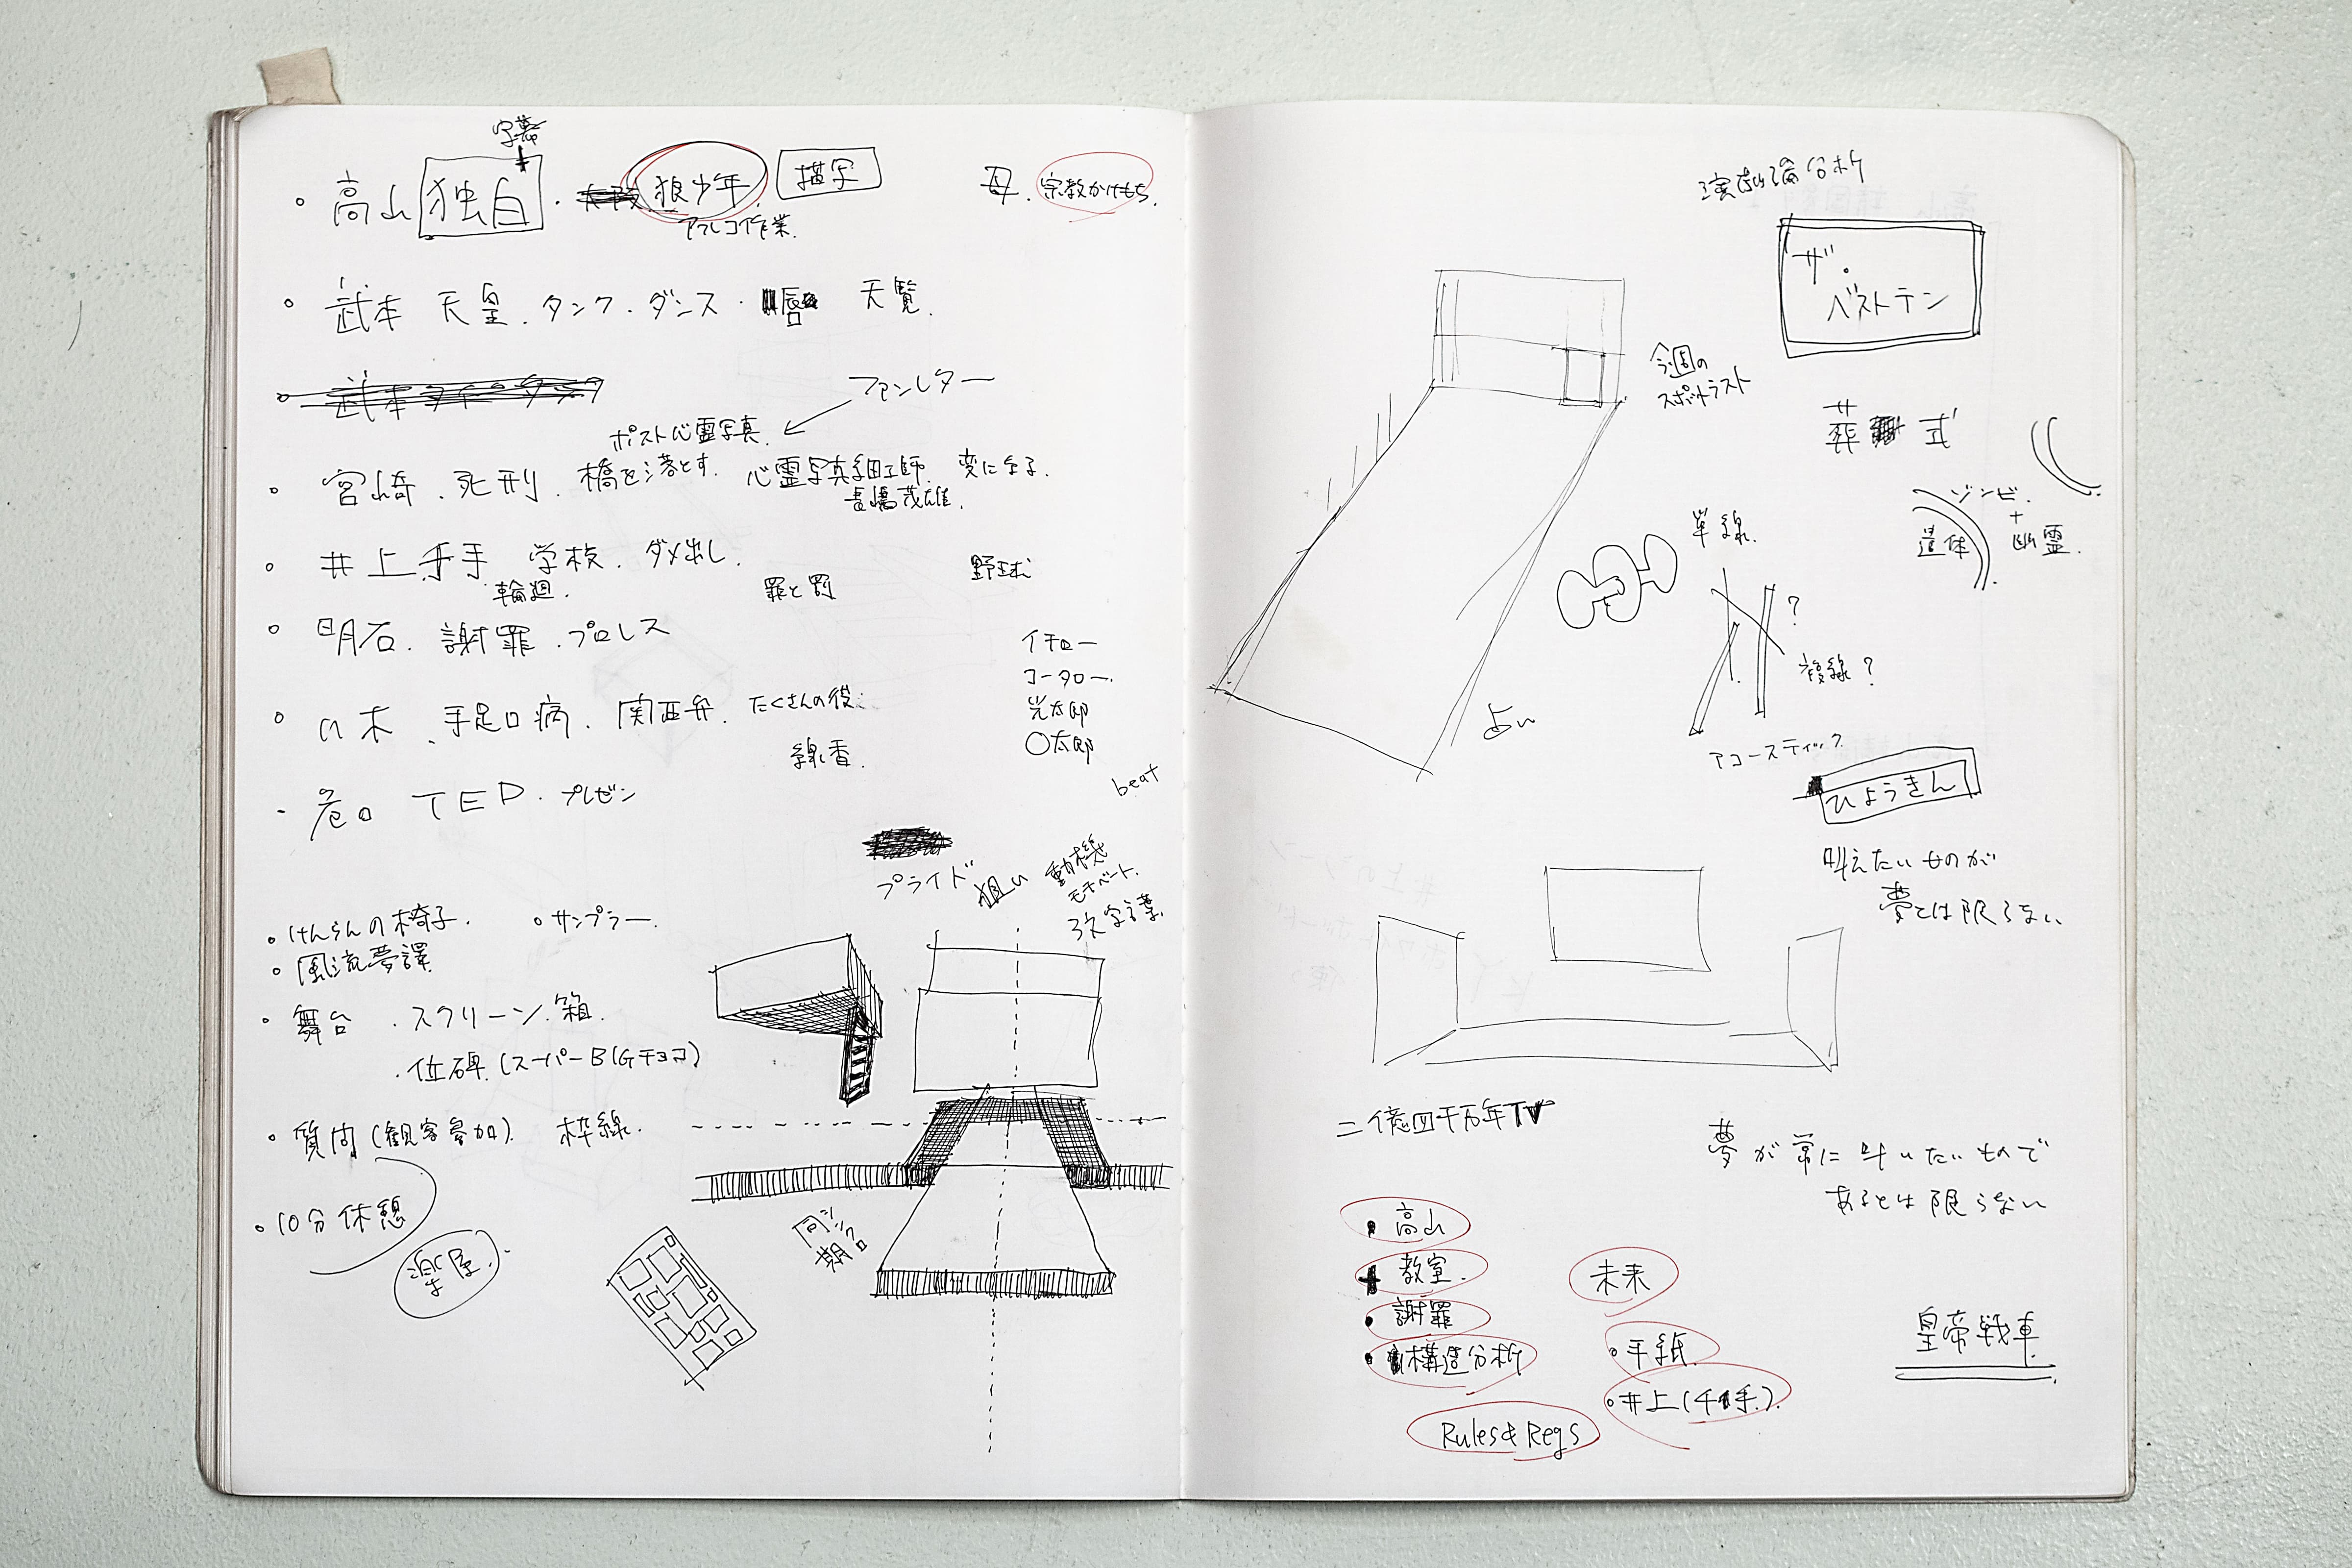 字幕
・高山 独白 ・ 狼少年. 描写 母. 宗教かけもち.
アフレコ作業.
・武本 天皇. タンク. ダンス. 唇 天覧.
ファンレター
ポスト心霊写真.
・宮崎. 死刑. 橋を落とす. 心霊写真細工師. 変になる.
長嶋茂雄.
・井上 千手 学校. ダメ出し. 野球
輪廻. 罪と罰
・明石. 謝罪. プロレス
イチロー
コータロー.
・山本. 手足口病. 関西弁. たくさんの役. 光太郎
線香. 〇太郎
・危口 TED. プレゼン
beat
プライド 狙い 動機
モチベート.
3文字言葉.
・けんらんの椅子. ・サンプラー.
・風流夢譚
・舞台 . スクリーン. 箱.
. 位牌 (スーパーBIGチョコ)
・質問 (観客参加). 枠線.
・10分休憩
楽屋.
同期 シンクロ
演劇論分析
ザ・
ベストテン
今週の
スポットライト
葬式
ゾンビ.
+
遺体 幽霊.
単線.
?
複線?
占い
アコースティック
ひょうきん
叶えたいものが
夢とは限らない
二億四千万年TV
夢が常に叶いたいもので
あるとは限らない
・高山
教室. 未来
・謝罪
・構造分析 ・手紙.
・井上 (千手).
Rules & Regs
皇帝戦車.